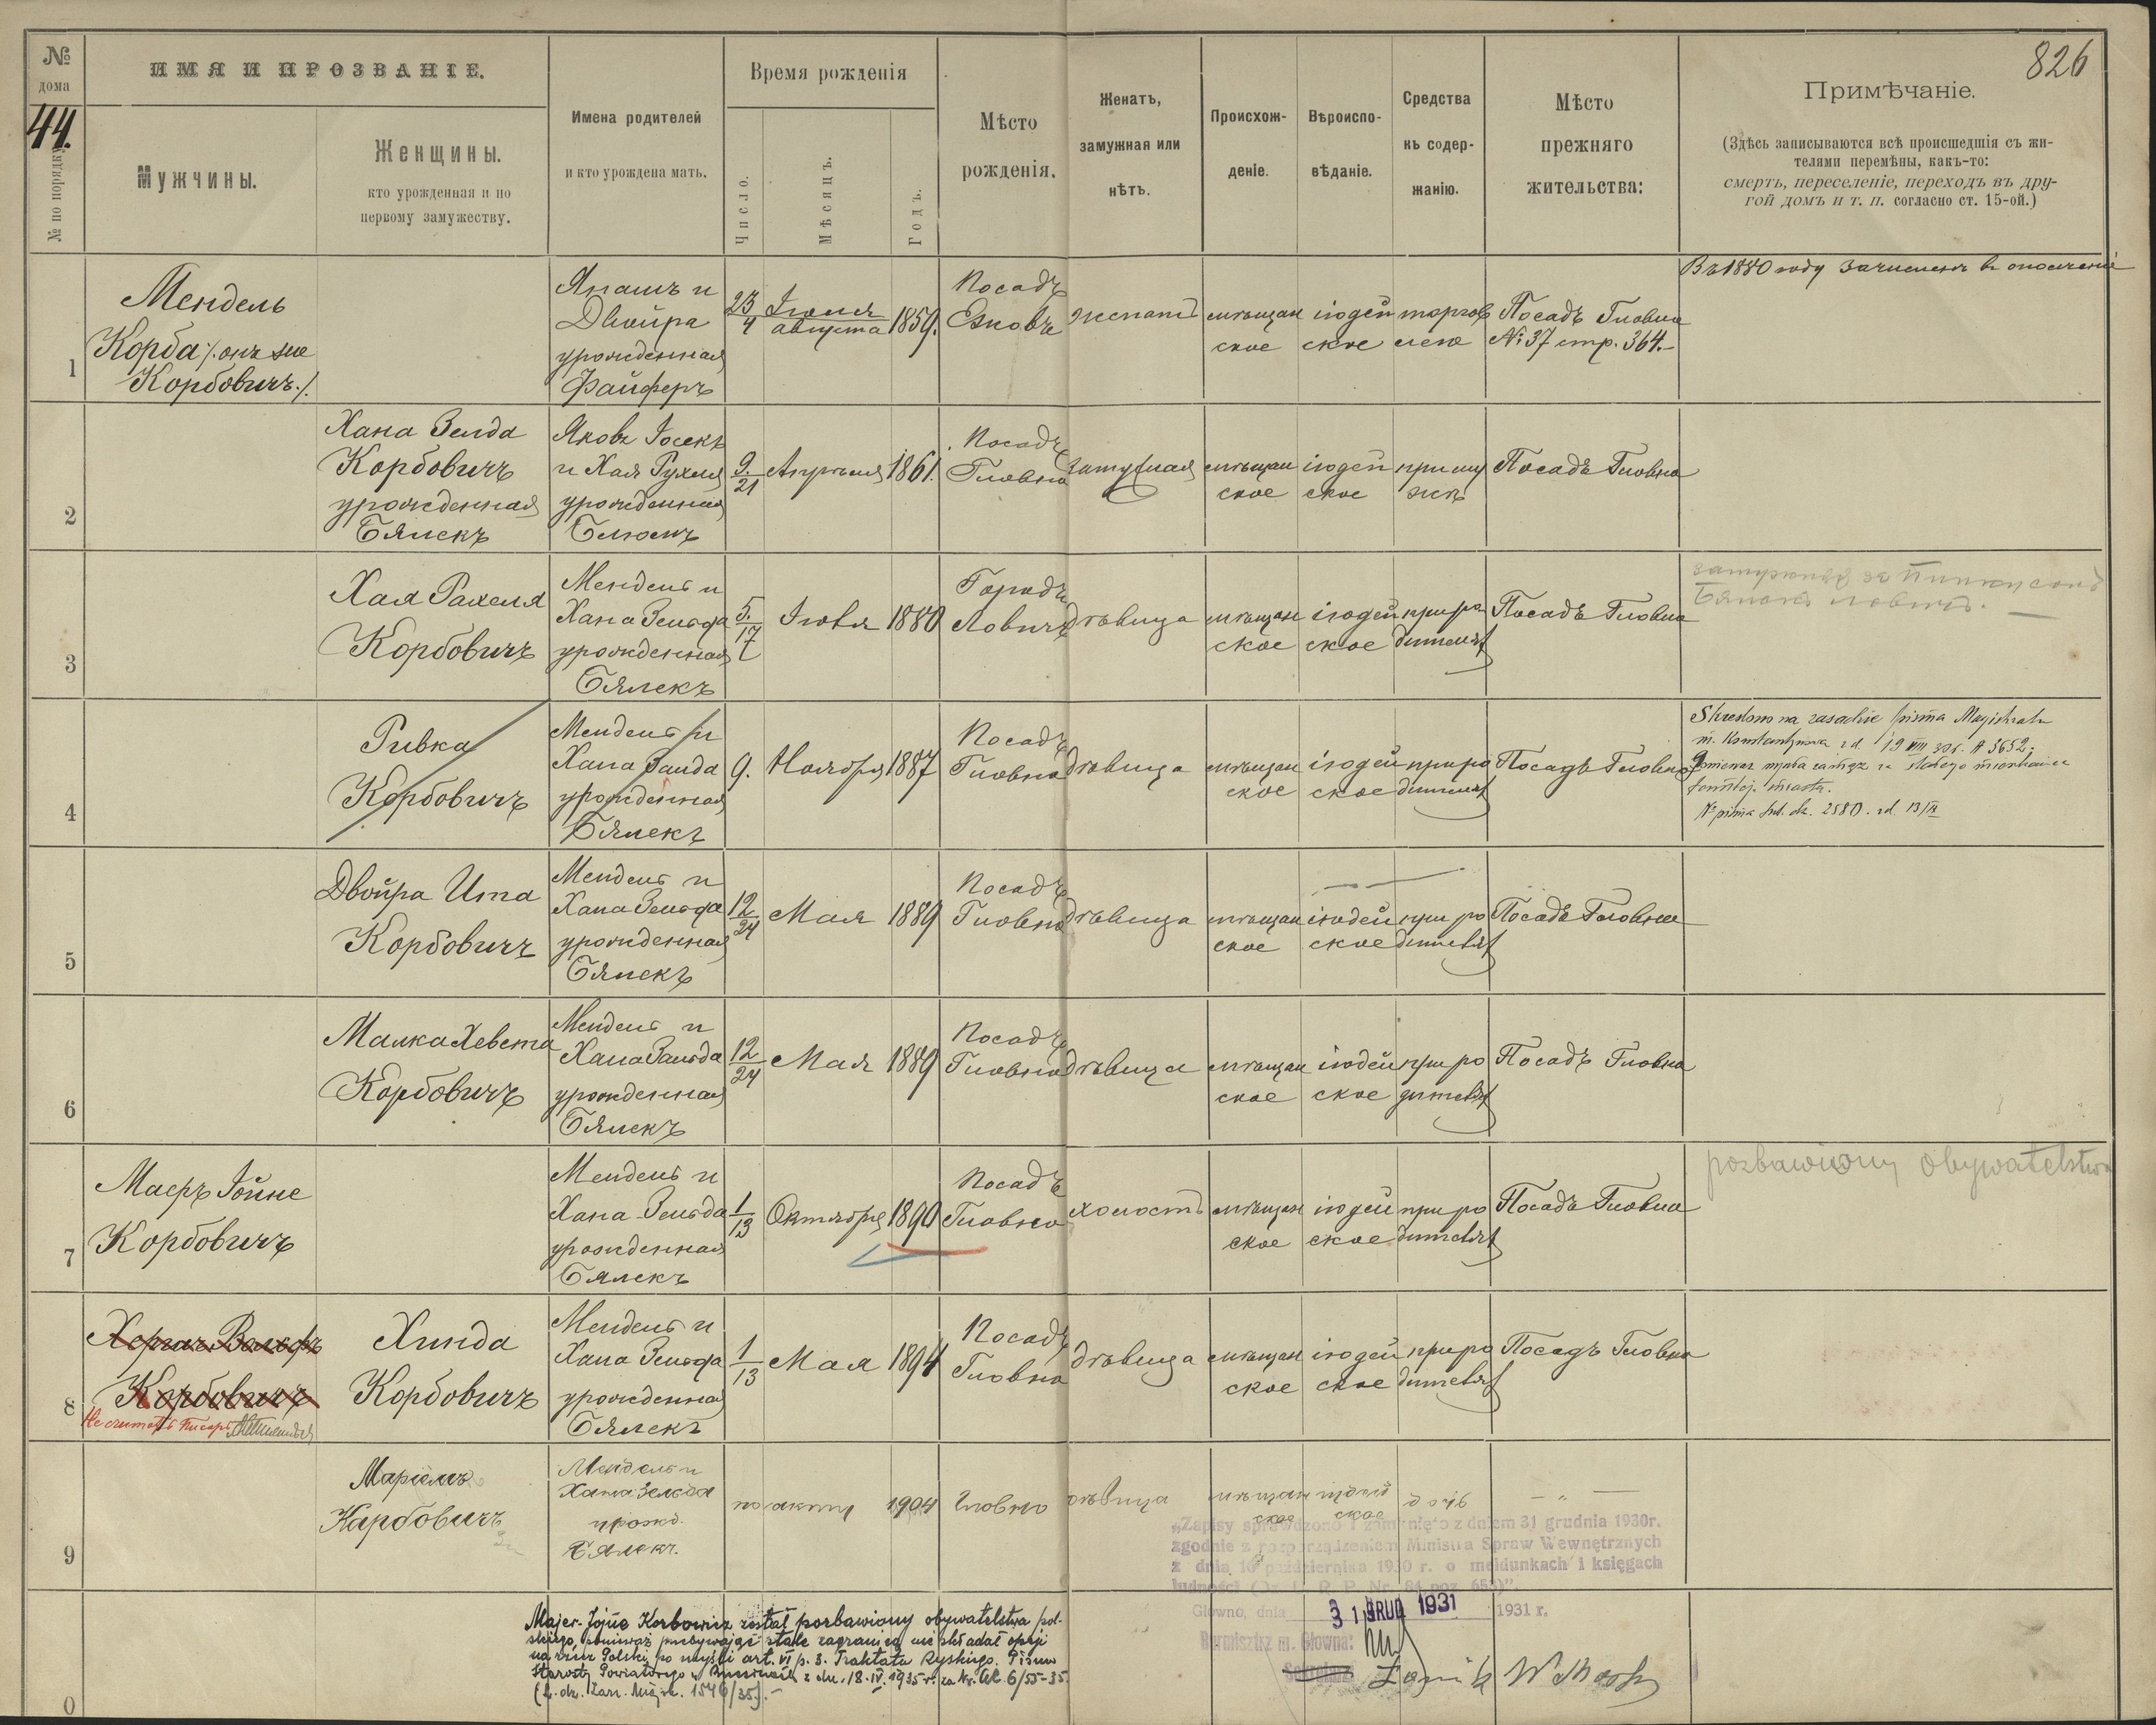 826
№
дома
44.
№ по порядку
ИМЯ И ПРОЗВАНІЕ.
Мужчины.
Женщины.
кто урожденная и по
первому замужеству.
Имена родителей
и кто урождена мать.
Время рожденія
Число.
Мѣсяцъ.
Годъ.
Мѣсто
рожденія.
Женатъ,
замужная или
нѣтъ.
Происхож-
деніе.
Вѣроиспо-
вѣданіе.
Средства
къ содер-
жанію.
Мѣсто
прежняго
жительства:
Примѣчаніе.
(Здѣсь записываются всѣ происшедшія съ жи-
телями перемѣны, какъ-то:
смерть, переселеніе, переходъ въ дру-
гой домъ и т. п. согласно ст. 15-ой.)
1
Мендель
Корба /. онъ же
Корбовичъ ./.
и
Двойра
урожденная
Файферъ
23/4
Іюля
августа
1859.
Посадъ
женатъ
мѣщан
ское
іюдей
ское
торгов
лею
Посадъ Гловна
№ 37 стр. 364.
Въ 1880 году зачисленъ въ ополченіе
2
Хана Зелда
Корбовичъ
урожденная
Бялекъ
Яковъ Іосекъ
и Хая Рухля
урожденная
Блюмъ
9./21
Апрѣля
1861.
Посадъ
Гловно
Замужная
мѣщан
ское
іюдей
ское
при му
жѣ
Посадъ Гловна
3
Хая Рахеля
Корбовичъ
Мендель и
Хана Зельда
урожденная
Бялекъ
5./17
1880
Городъ
Ловичъ
дѣвица
мѣщан
ское
іюдей
ское
при ро
дителяхъ
Посадъ Гловна
4
Ривка
Корбовичъ
Мендель и
Хана Зельда
урожденная
Бялекъ
9.
Ноября
1887
Посадъ
Гловно
дѣвица
мѣщан
ское
іюдей
ское
при ро
дителяхъ
Посадъ Гловно
Skreślono na zasadzie pisma Magistratu
m. Konstantynowa z d. 19 VIII 30 r. № 3652;
ponieważ wyszła zamąż za stałego mieszkańca
tamtej. miasta.
№ pisma 2580. z d. 13/IX
5
Двойра Ита
Корбовичъ
Мендель и
Хана Зельда
урожденная
Бялекъ
12/24
Мая
1889
Посадъ
Гловно
дѣвица
мѣщан
ское
іюдей
ское
при ро
дителяхъ
Посадъ Гловна
6
Малка Хевета
Корбовичъ
Мендель и
Хана Зельда
урожденная
Бялекъ
12/24
Мая
1889
Посадъ
Гловно
дѣвица
мѣщан
ское
іюдей
ское
при ро
дителяхъ
Посадъ Гловна
7
Маеръ Іойне
Корбовичъ
Мендель и
Хана Зельда
урожденная
Бялекъ
1/13
Октября
1890
Посадъ
Гловно
холостъ
мѣщан
ское
іюдей
ское
при ро
дителяхъ
Посадъ Гловна
pozbawiony obywatelstwa
8
Вольфъ
Корбовичъ
Не считать Писарь
Хинда
Корбовичъ
Мендель и
Хана Зельда
урожденная
Бялекъ
1/13
Мая
1894
Посадъ
Гловно
дѣвица
мѣщан
ское
іюдей
ское
при ро
дителяхъ
Посадъ Гловна
9
Маріемъ
Карбовичъ
Мендель и
Хана Зельда
урожд.
Бялекъ.
по акту
1904
Гловно
дѣвица
мѣщан
ское
іудей
ское
дочь
— „ —
„Zapisy sprawdzono i zamknięto z dniem 31 grudnia 1930r.
zgodnie z rozporządzeniem Ministra Spraw Wewnętrznych
z dnia 16 października 1930 r. o meldunkach i księgach
ludności (Dz. U. R. P. Nr. 84 poz. 653)"
Główno, dnia 31 GRUD 1931 1931 r.
Burmistrz m. Główna:
0
Majer-Jojne Korbowicz został pozbawiony obywatelstwa pol-
skiego, ponieważ przebywając stale zagranicą nie składał opcji
na rzecz Polski po myśli art. VI p. 3. Traktatu Ryskiego. Pismo
Starosty Powiatowego w Brzezinach z dn. 18.IV.1935 r. za Nr. 6/55-35.
(L. dz. Zarz. Miejsk. 1546/35).-